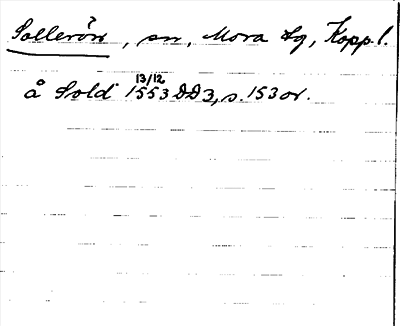 Sollerön, sn, Mora tg, Kopp. l.
å Sold 13/12 1553 DD3, s. 153 or.